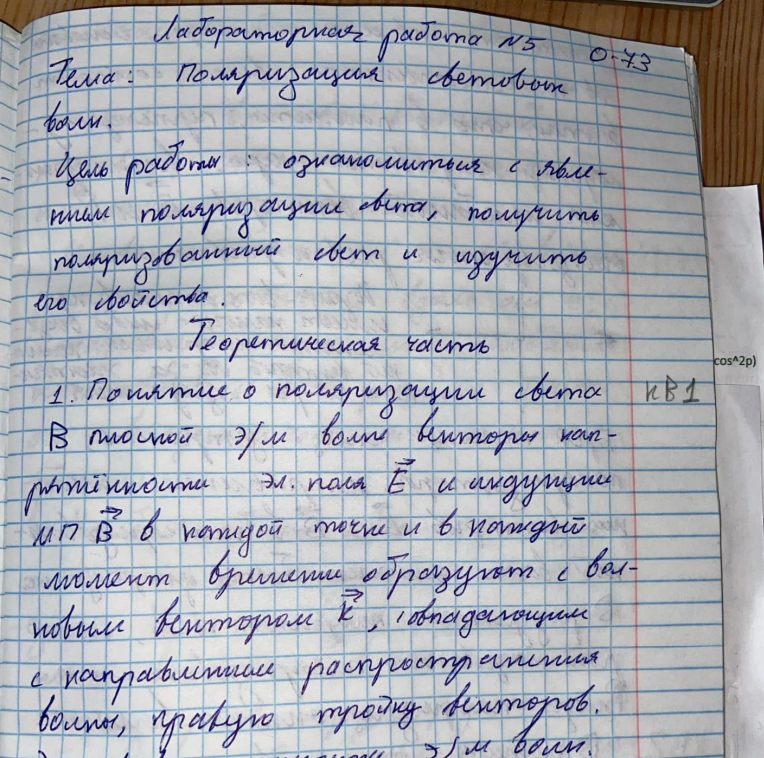 Лабораторная работа №5
О-73
Тема: Поляризация световых
волн.
Цель работы: ознакомиться с явле-
нием поляризации света, получить
поляризованный свет и изучить
его свойства.
Теоретическая часть
cos^2p)
1. Понятие о поляризации света
кВ1
В плоской э/м волне векторы нап-
ряжённости эл. поля E и индукции
МП B в каждой точке и в каждый
момент времени образуют с вол-
новым вектором k, совпадающим
с направлением распространения
волны, правую тройку векторов.
э/м волн.